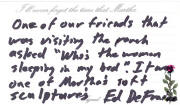 I'll never forget the time that Martha
One of our friends that
was visiting the ranch
asked "Who's the woman
sleeping in my bed" It was
one of Martha's soft
sculptures. Ed DeFran